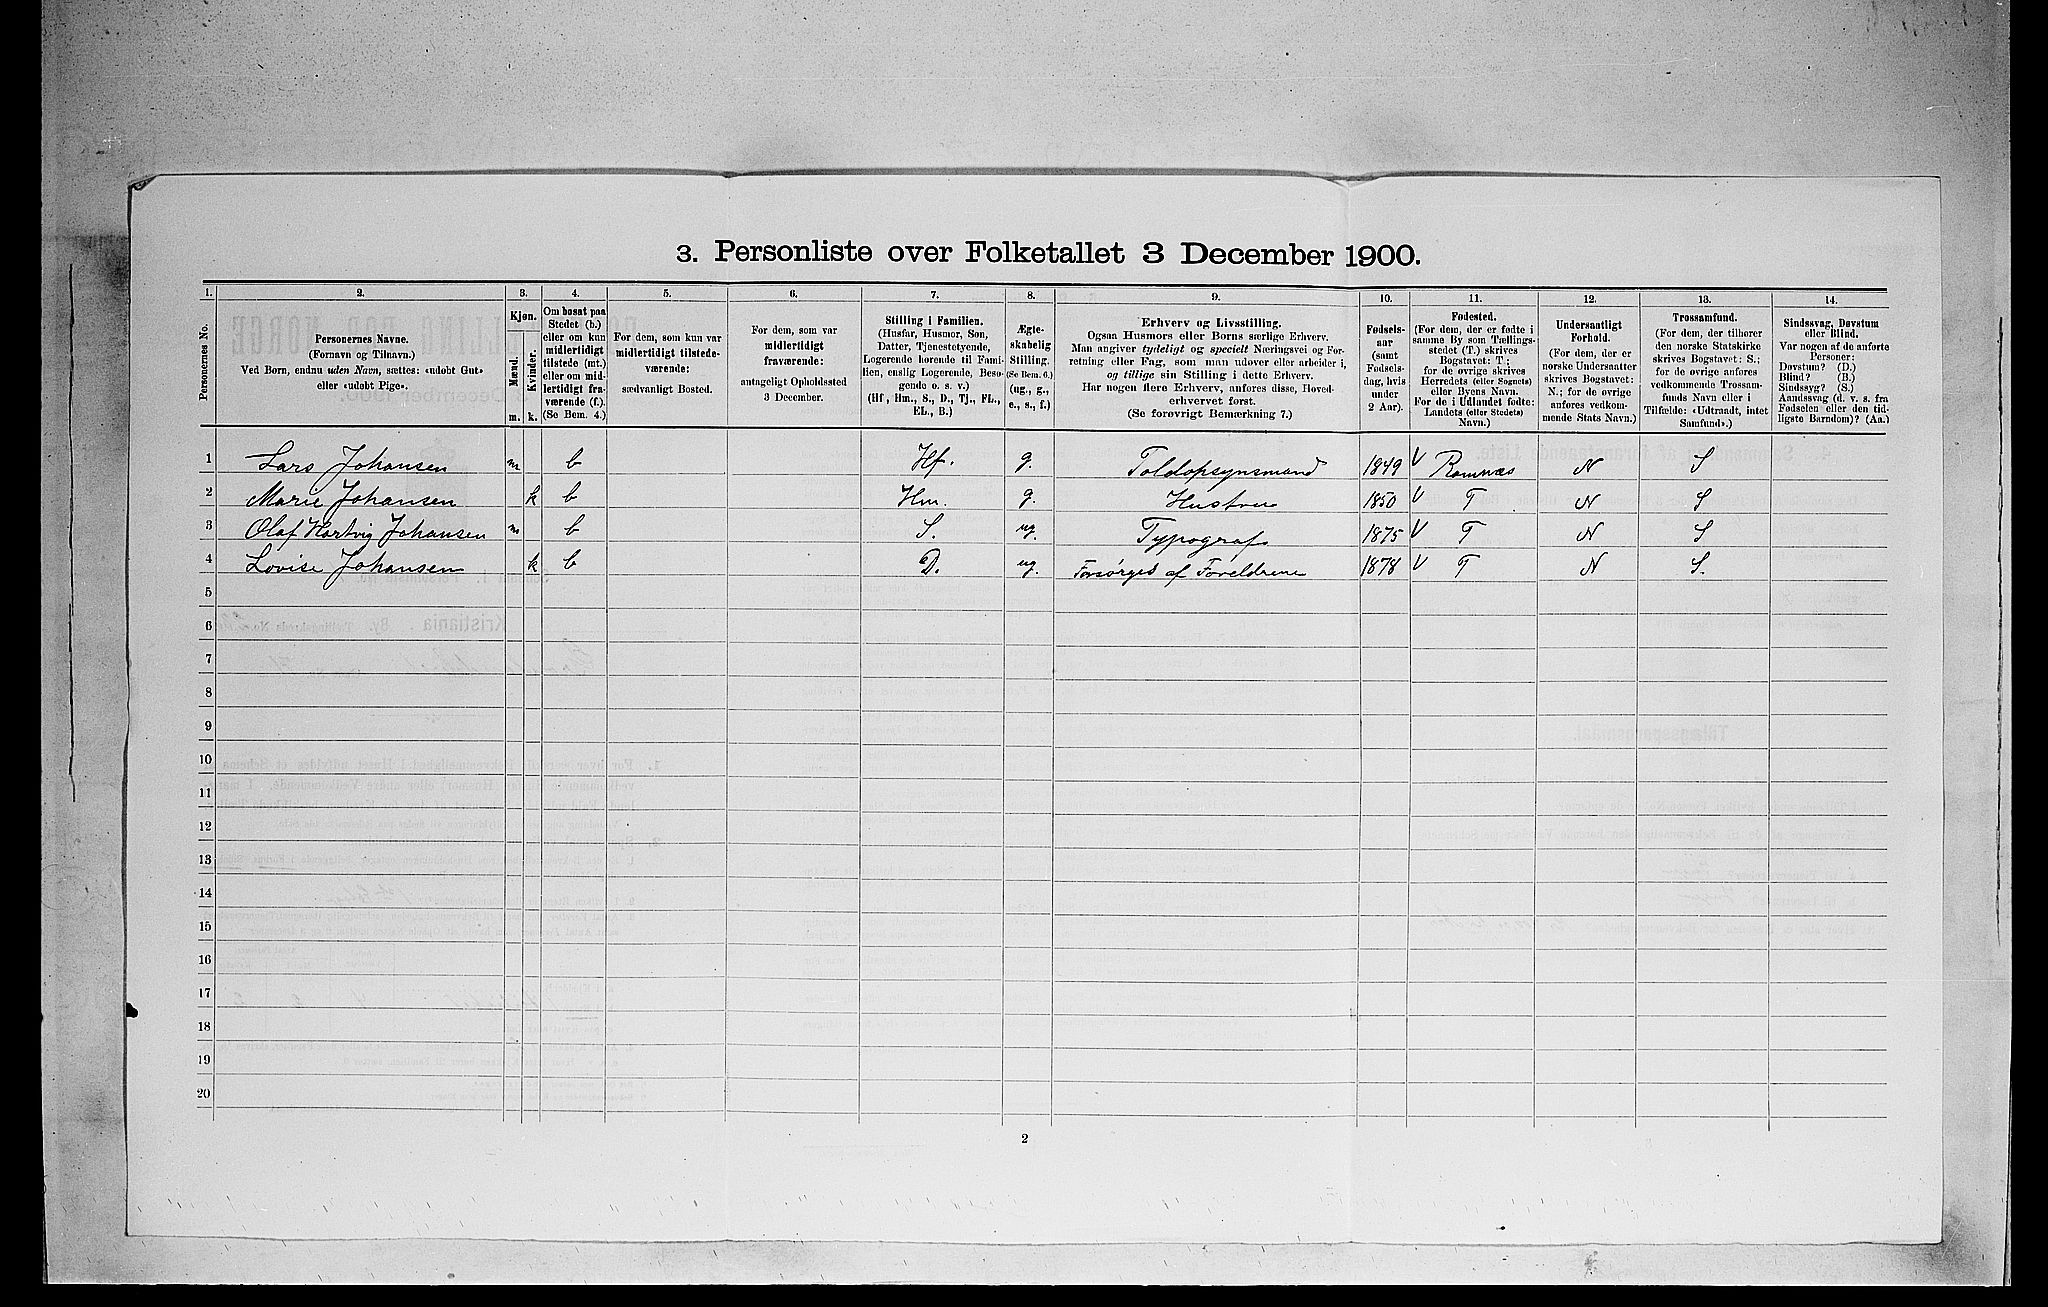 3. Personliste over Folketallet 3 December 1900.
1. 2. 3. 4. 5. 6. 7. 8. 9. 10. 11. 12. 13. 14.
Personernes No.
Personernes Navne.
(Fornavn og Tilnavn.)
Ved Børn, endnu uden Navn, sættes: «udøbt Gut»
eller «udøbt Pige».
Kjøn.
Mænd.
Kvinder.
m. k.
Om bosat paa
Stedet (b.)
eller om kun
midlertidigt
tilstede (mt.)
eller om mid-
lertidigt fra-
værende (f.).
(Se Bem. 4.)
For dem, som kun var
midlertidigt tilstede-
værende:
sædvanligt Bosted.
For dem, som var
midlertidigt
fraværende:
antageligt Opholdssted
3 December.
Stilling i Familien.
(Husfar, Husmor, Søn,
Datter, Tjenestetyende,
Logerende hørende til Fami-
lien, enslig Logerende, Besø-
gende o. s. v.)
(Hf., Hm., S., D., Tj., FL.,
EL., B.)
Ægte-
skabelig
Stilling.
(Se Bem. 6.)
(ug., g.,
e., s., f.)
Erhverv og Livsstilling.
Ogsaa Husmors eller Børns særlige Erhverv.
Man angiver tydeligt og specielt Næringsvei og For-
retning eller Fag, som man udøver eller arbeider i,
og tillige sin Stilling i dette Erhverv.
Har nogen flere Erhverv, anføres disse, Hoved-
erhvervet først.
(Se forøvrigt Bemærkning 7.)
Fødsels-
aar
(samt
Fødsels-
dag, hvis
under
2 Aar).
Fødested.
(For dem, der er fødte i
samme By som Tællings-
stedet (T.) skrives
Bogstavet: T.;
for de øvrige skrives
Herredets (eller Sognets)
eller Byens Navn.
For de i Udlandet fødte:
Landets (eller Stedets)
Navn.)
Undersaatligt
Forhold.
(For dem, der er
norske Undersaatter
skrives Bogstavet:
N.; for de øvrige
anføres vedkom-
mende Stats Navn.)
Trossamfund.
(For dem, der tilhører
den norske Statskirke
skrives Bogstavet: S.;
for de øvrige anføres
vedkommende Trossam-
funds Navn eller i
Tilfælde: «Udtraadt, intet
Samfund».)
Sindssvag, Døvstum
eller Blind.
Var nogen af de anførte
Personer:
Døvstum? (D.)
Blind? (B.)
Sindssyg? (S.)
Aandssvag (d. v. s. fra
Fødselen eller den tid-
ligste Barndom)? (Aa.)
1 Lars Johansen m b Hf. g. Toldopsynsmand 1849 V Ramnæs N S
2 Marie Johansen k b Hm. g. Hustru 1850 V T N S
3 Olaf Hartvig Johansen m b S. ug. Typograf 1875 V T N S
4 Lovise Johansen k b D. ug. Forsørges af Foreldrene 1878 V T N S.
5
6
7
8
9
10
11
12
13
14
15
16
17
18
19
20
2